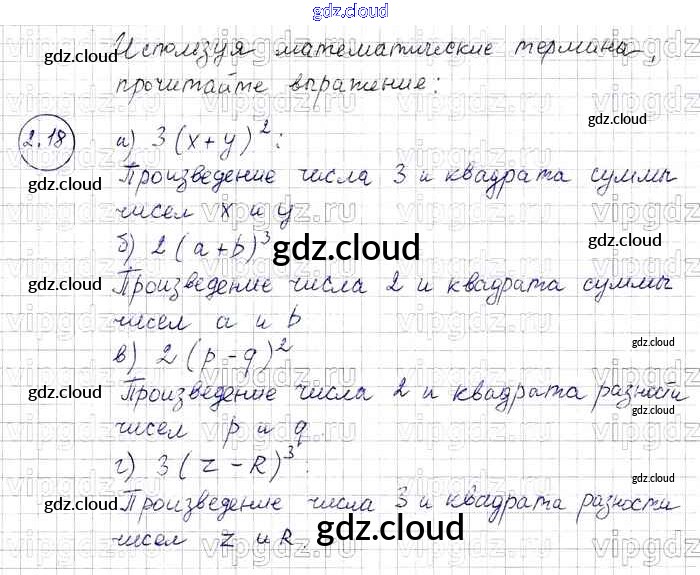 gdz.cloud
Используя математические термина,
gdz.cloud
прочитайте выражение:
2.18 а) 3(x+y)²:
gdz.cloud gdz.cloud
Произведение числа 3 и квадрата суммы
gdz.cloud
чисел x и y
б) 2(a+b)³
gdz.cloud gdz.cloud
Произведение числа 2 и квадрата суммы
gdz.cloud
чисел a и b
gdz.cloud
в) 2(p-q)²
Произведение числа 2 и квадрата разности
gdz.cloud
gdz.cloud
чисел p и q.
г) 3(z-R)³:
gdz.cloud
Произведение числа 3 и квадрата разности
gdz.cloud
gdz.cloud
чисел z и R.